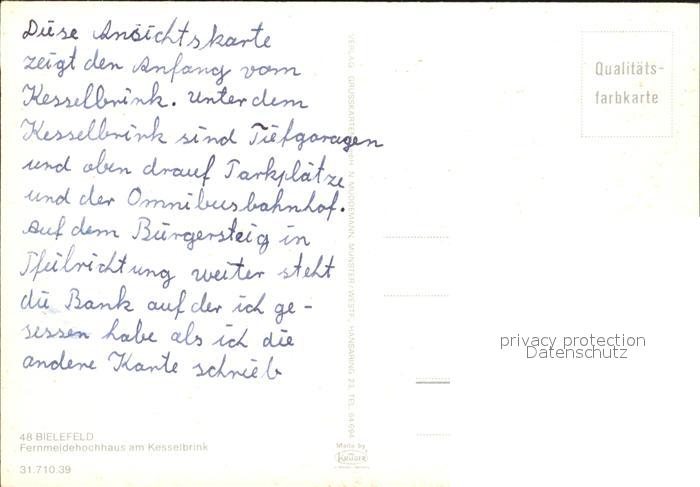 Diese Ansichtskarte
zeigt den Anfang vom
Kesselbrink. Unter dem
Kesselbrink sind Tiefgaragen
und oben drauf Parkplätze
und der Omnibusbahnhof.
Auf dem Bürgersteig in
Pfeilrichtung weiter steht
die Bank auf der ich ge-
sessen habe als ich die
andere Karte schrieb
48 BIELEFELD
Fernmeldehochhaus am Kesselbrink
31.710.39
VERLAG GRUSSKARTEN N. MÜNSTER/WESTF. HANSARING 23, TEL. 64694
Made by
KRÜGER
Qualitäts-
farbkarte
privacy protection
Datenschutz